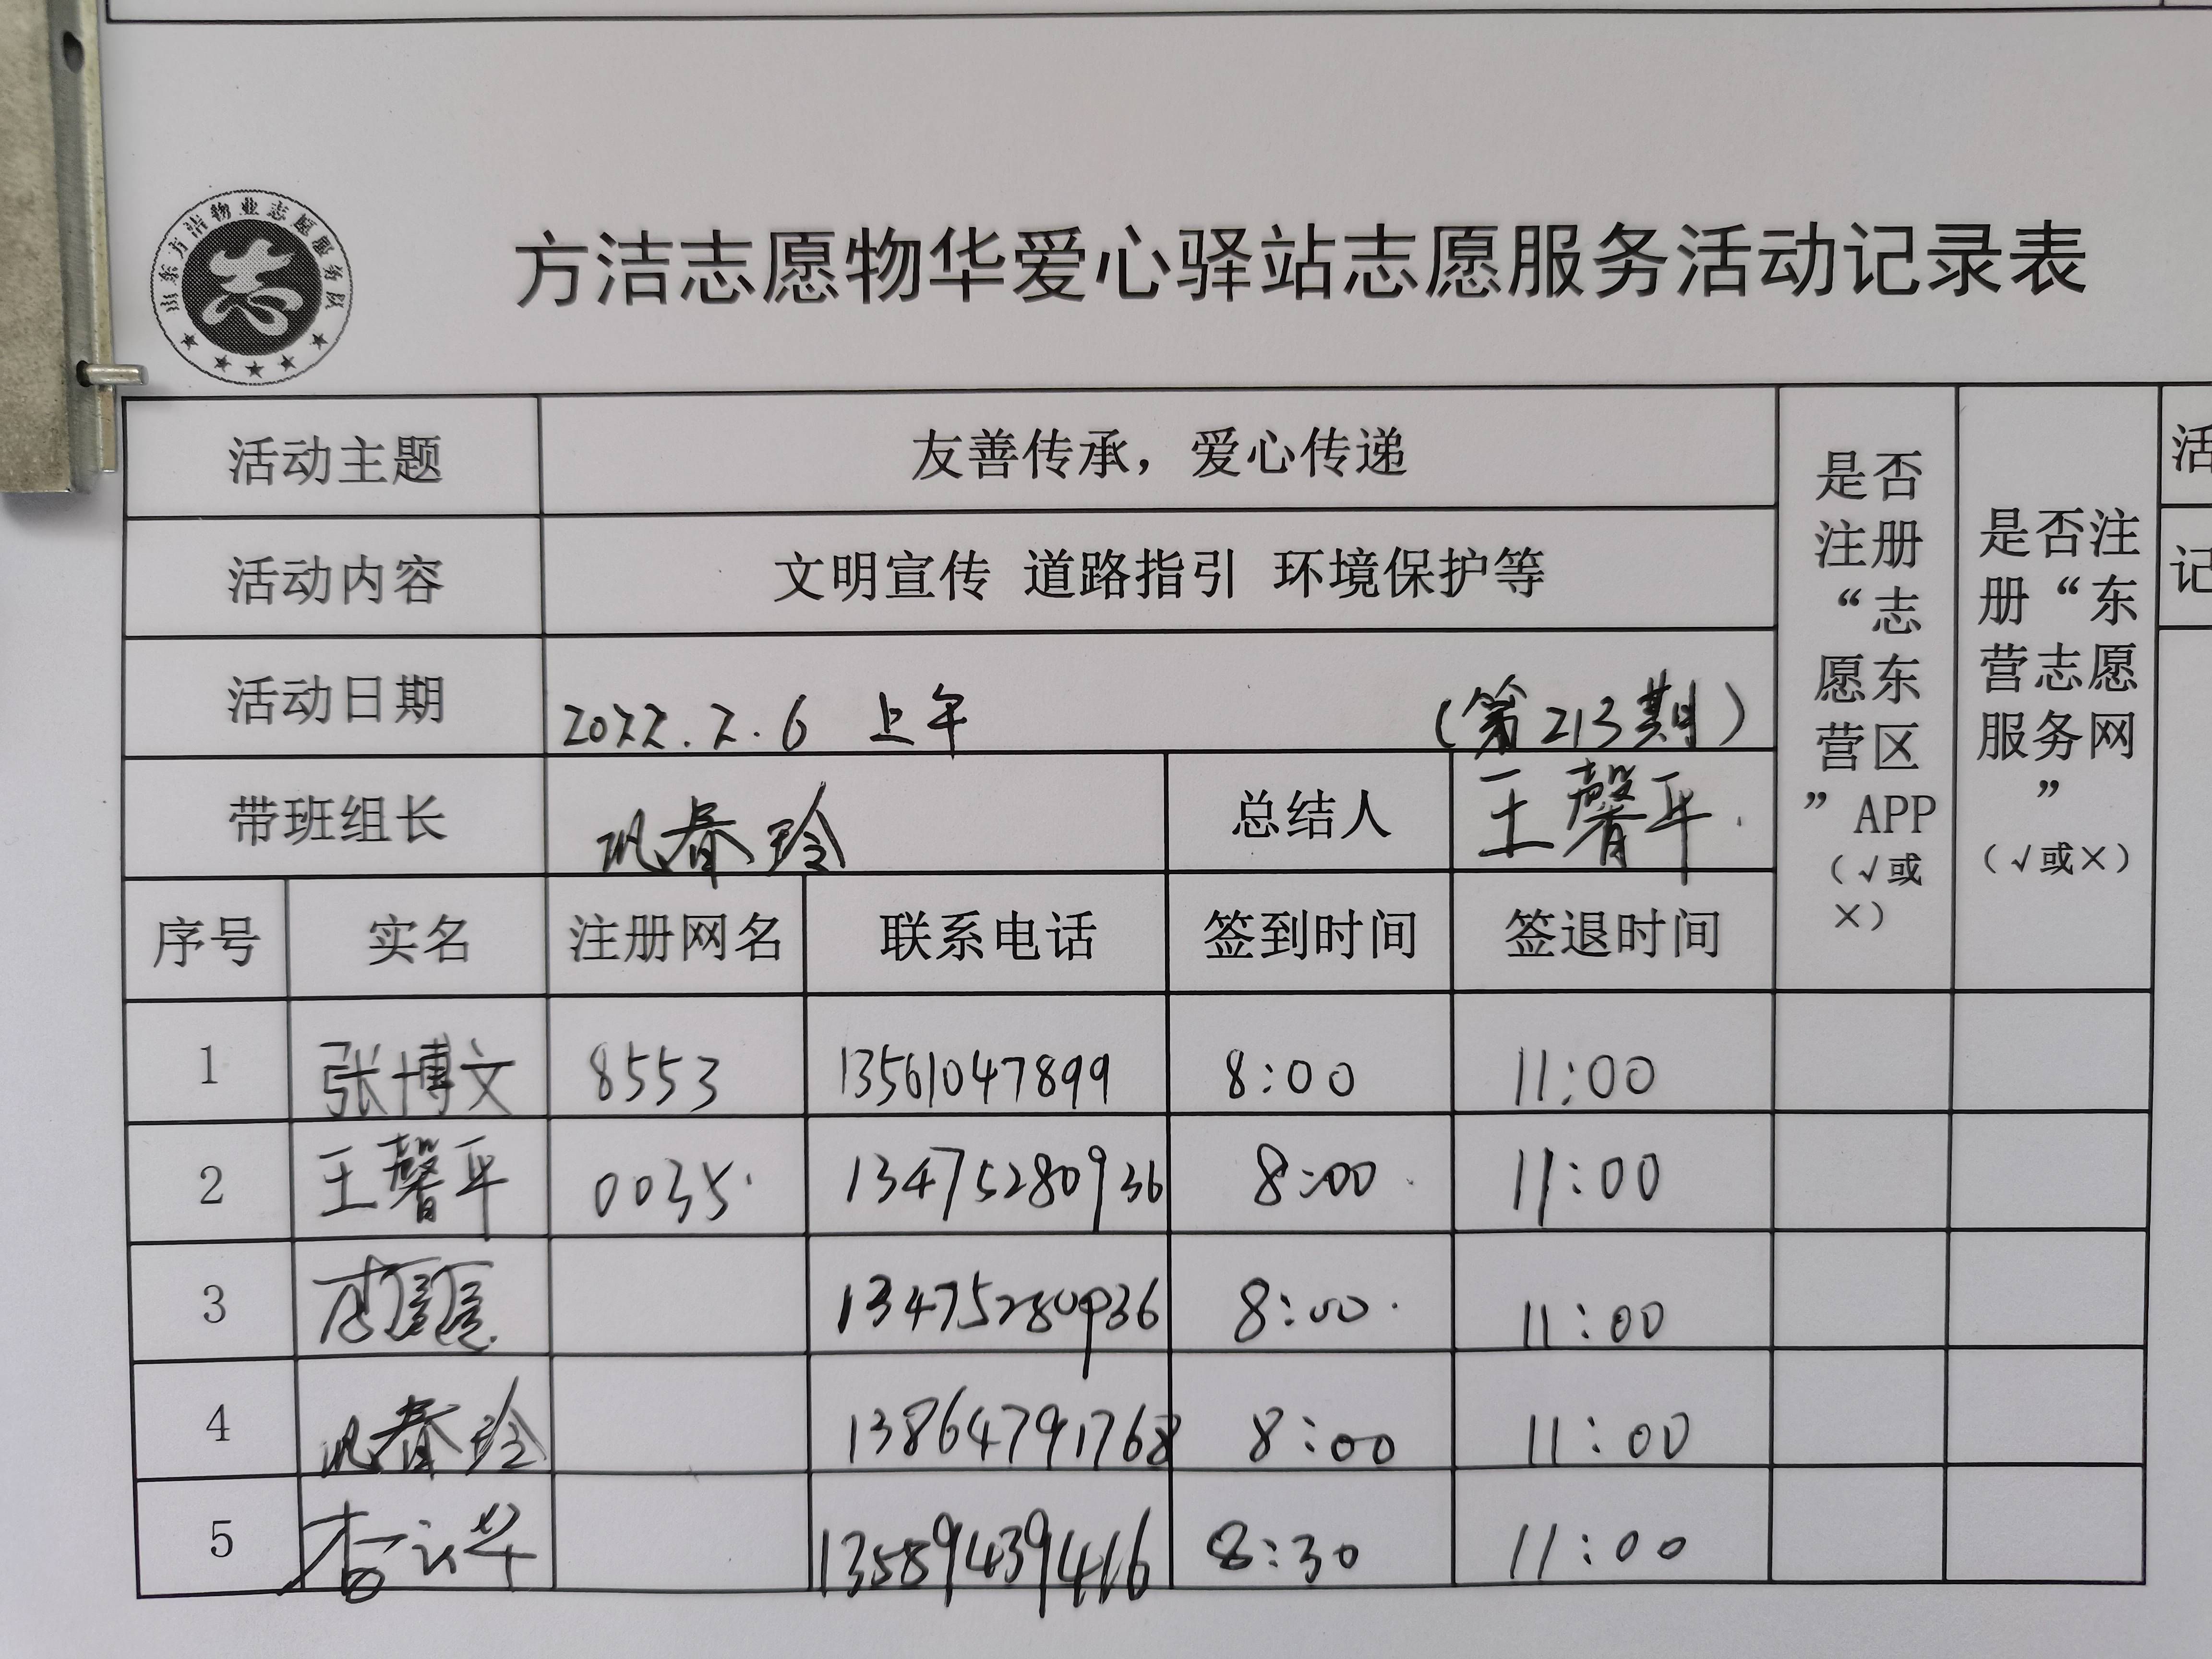 山东方洁物业志愿服务队
志
方洁志愿物华爱心驿站志愿服务活动记录表
活动主题 友善传承，爱心传递
活动内容 文明宣传 道路指引 环境保护等
活动日期 2022.2.6 上午 (第213期)
带班组长 巩春玲 总结人 王馨平.
是否
注册
“志
愿东
营区
”APP
（√或
×）
是否注
册“东
营志愿
服务网
”
（√或×）
活
记
序号 实名 注册网名 联系电话 签到时间 签退时间
1 张博文 8553 13561047899 8:00 11:00
2 王馨平 0035. 13475280936 8:00. 11:00
3 13475280936 8:00. 11:00
4 巩春玲 13864791768 8:00 11:00
5 13589439416 8:30 11:00